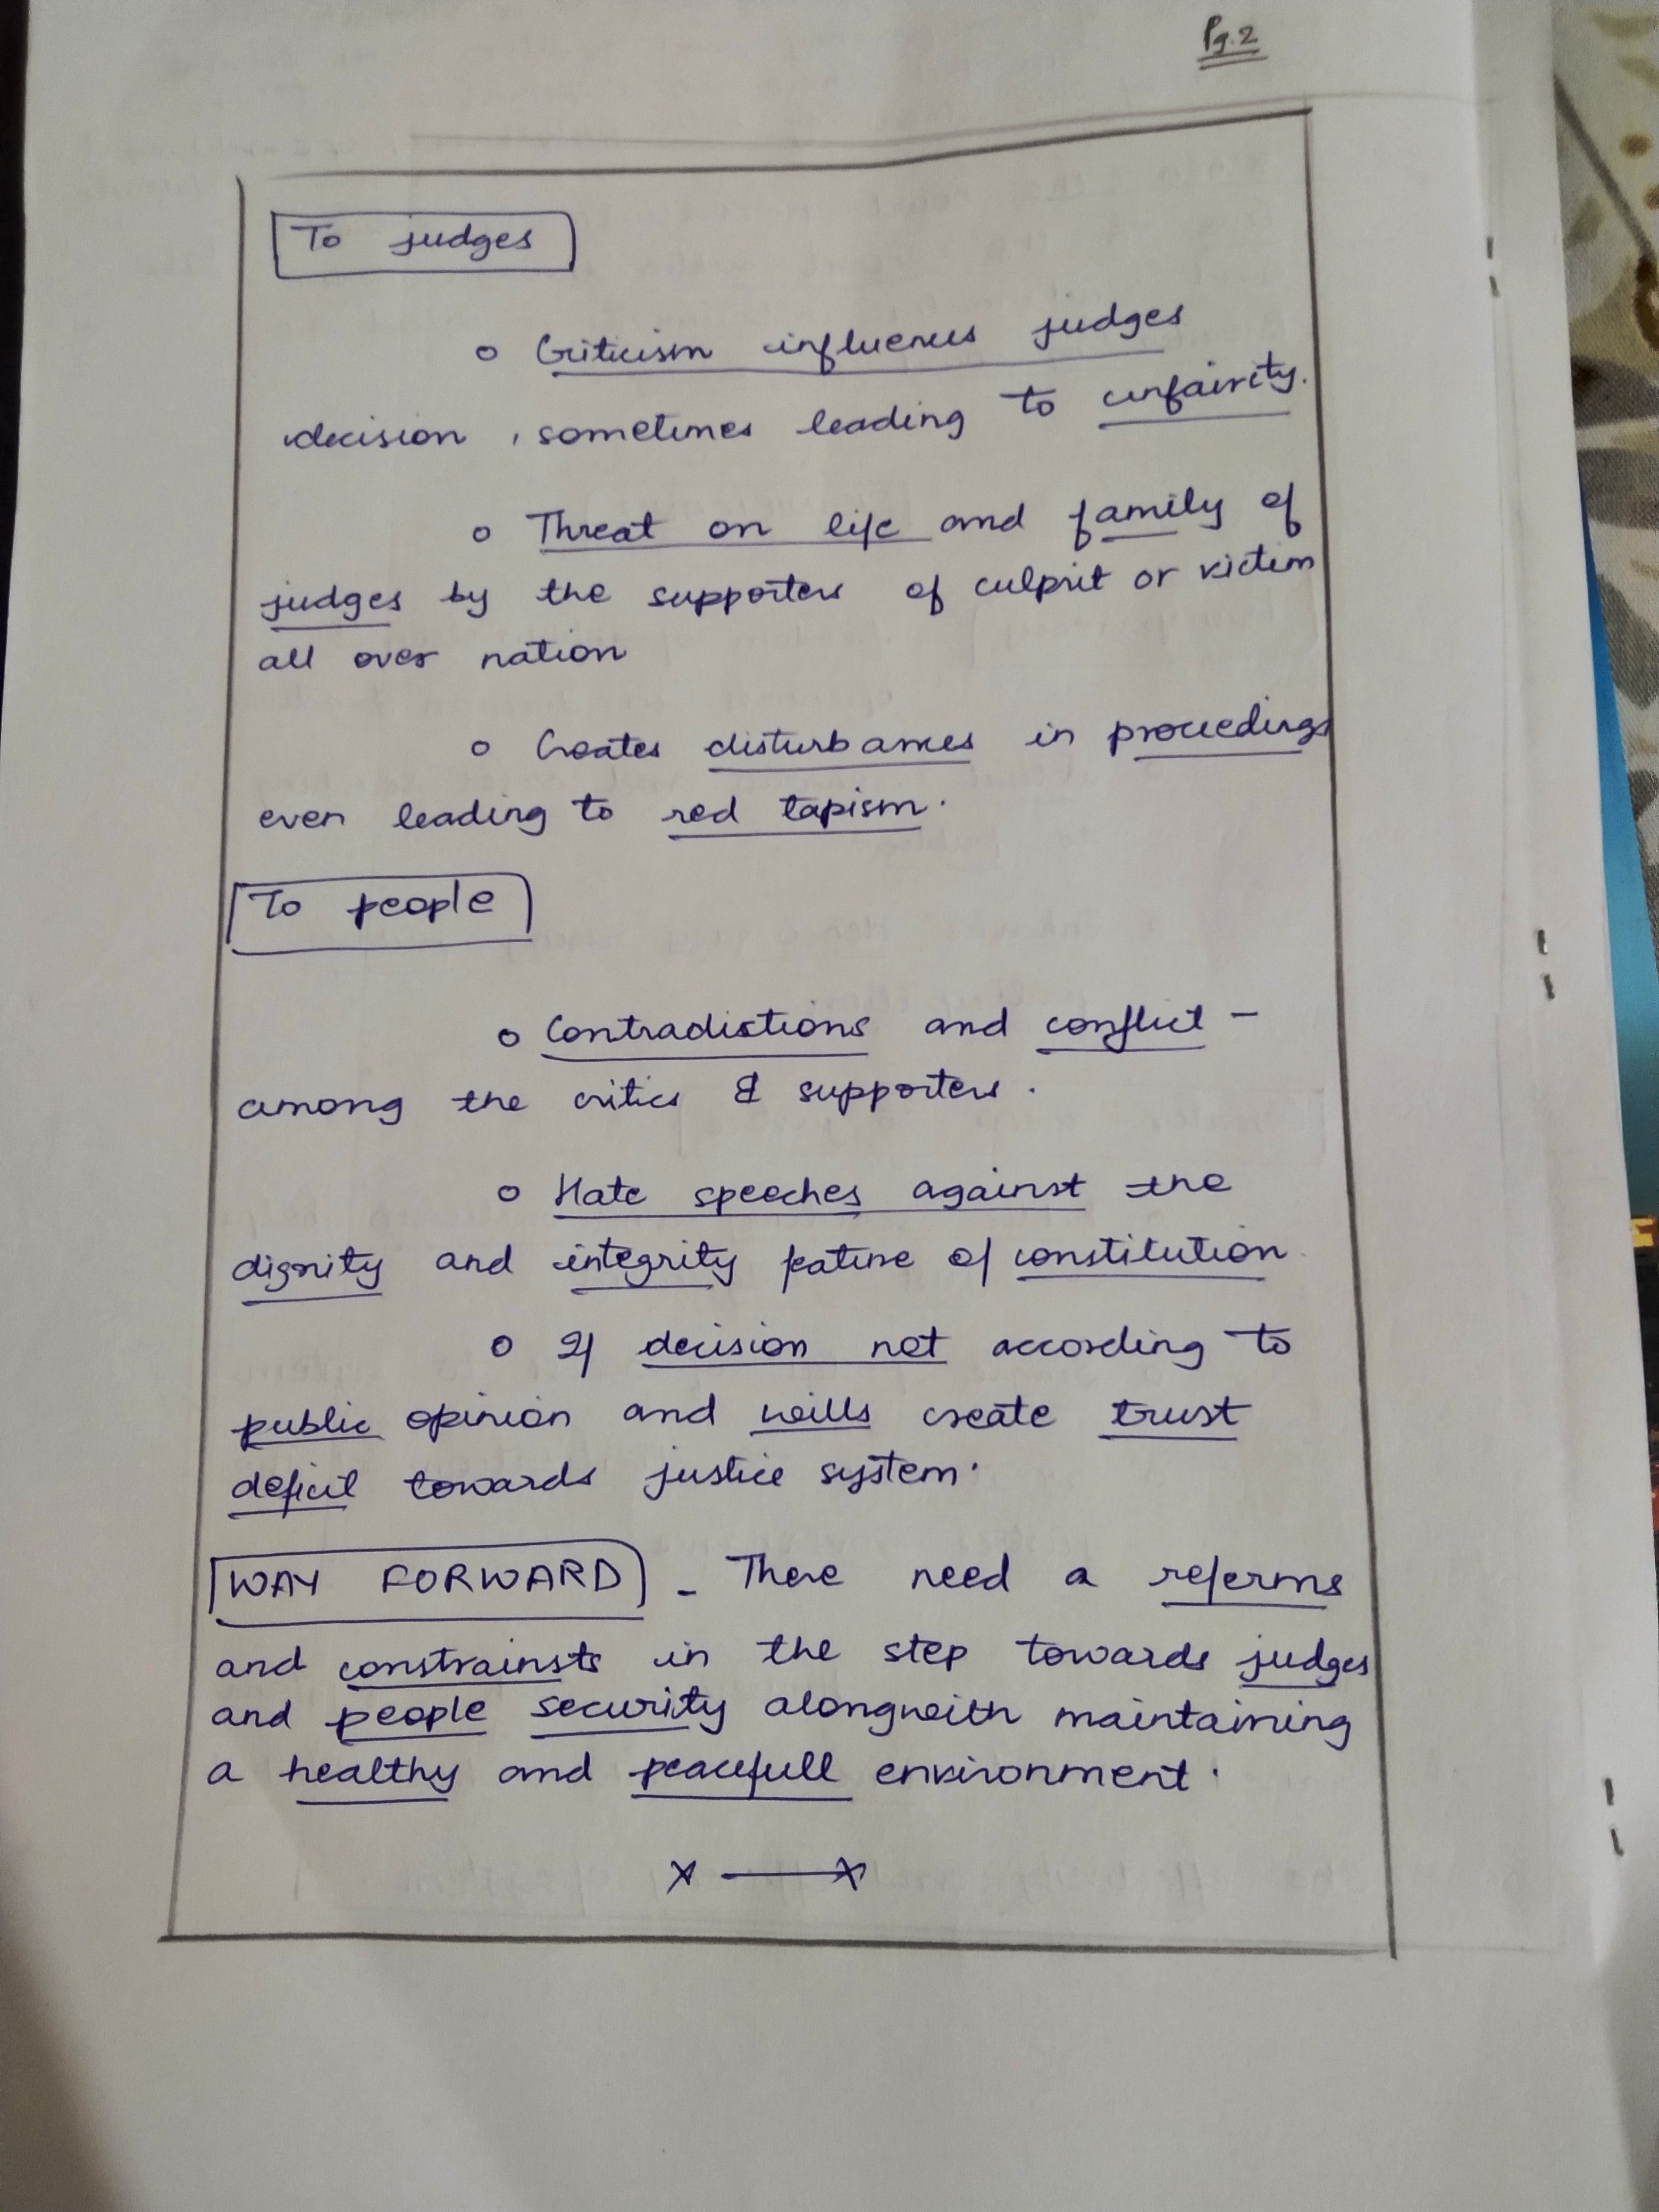 Pg.2
To judges
o Criticism influences judges
decision, sometimes leading to unfairity.
o Threat on life and family of
judges by the supporters of culprit or victim
all over nation
o Creates disturbances in proceedings
even leading to red tapism.
To people
o Contradictions and conflict -
among the critics & supporters.
o Hate speeches against the
dignity and integrity feature of constitution
o If decision not according to
public opinion and wills create trust
deficit towards justice system.
WAY FORWARD - There need a reforms
and constrainsts in the step towards judges
and people security alongwith maintaining
a healthy and peacefull environment.
x — x